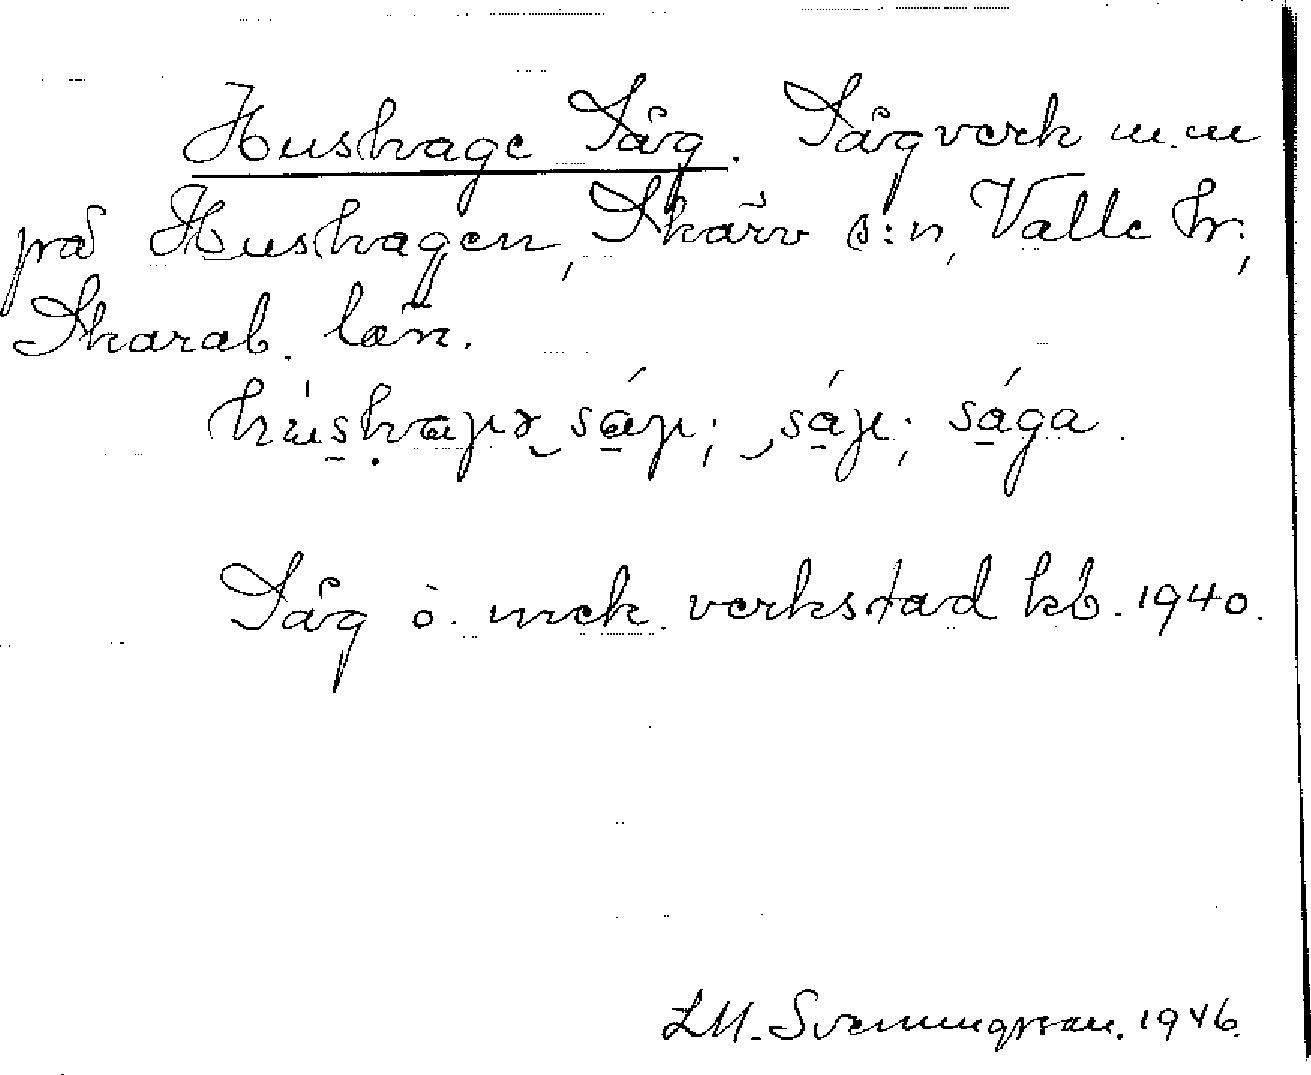 Hushage Såg. Sågverk m.m
på Hushagen, Skärv s:n, Valle hr;
Skarab. län.
sága
Såg o. mek. verkstad kb. 1940.
LM. Svenungsson. 1946.